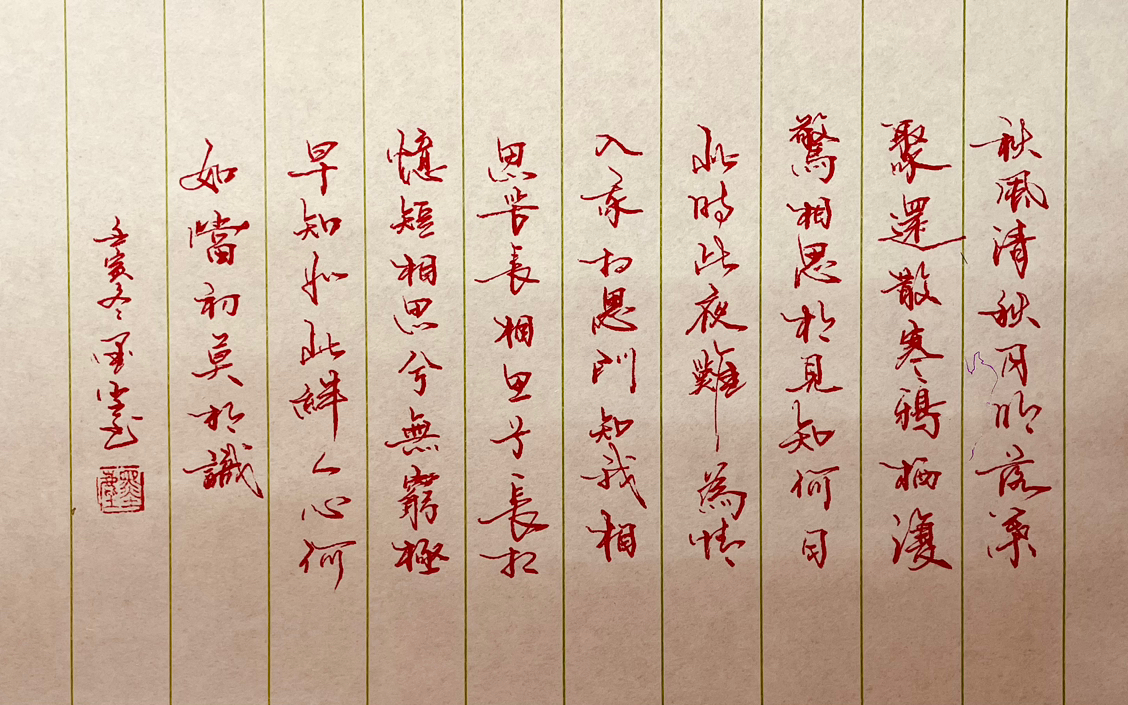 秋風清秋月明落葉
聚還散寒鴉栖復
驚相思相見知何日
此時此夜難為情
入我相思門知我相
思苦長相思兮長相
憶短相思兮無窮極
早知如此絆人心何
如當初莫相識
壬寅冬墨